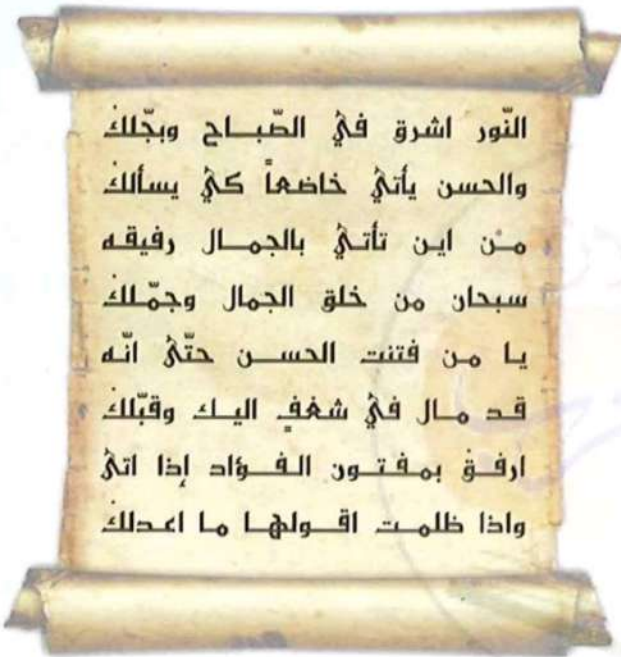 النّور اشرق فيْ الصّباح وبجّلكْ
والحسن يأتيْ خاضعاً كيْ يسألكْ
منْ اين تأتيْ بالجمال رفيقه
سبحان من خلق الجمال وجمّلكْ
يا من فتنت الحسن حتّىْ انّه
قد مال فيْ شغفٍ اليك وقبّلكْ
ارفقْ بمفتون الفؤاد إذا اتىْ
واذا ظلمت اقولها ما اعدلكْ